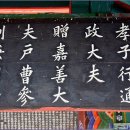 孝子行通
政大夫
贈嘉善大
夫戶曹參